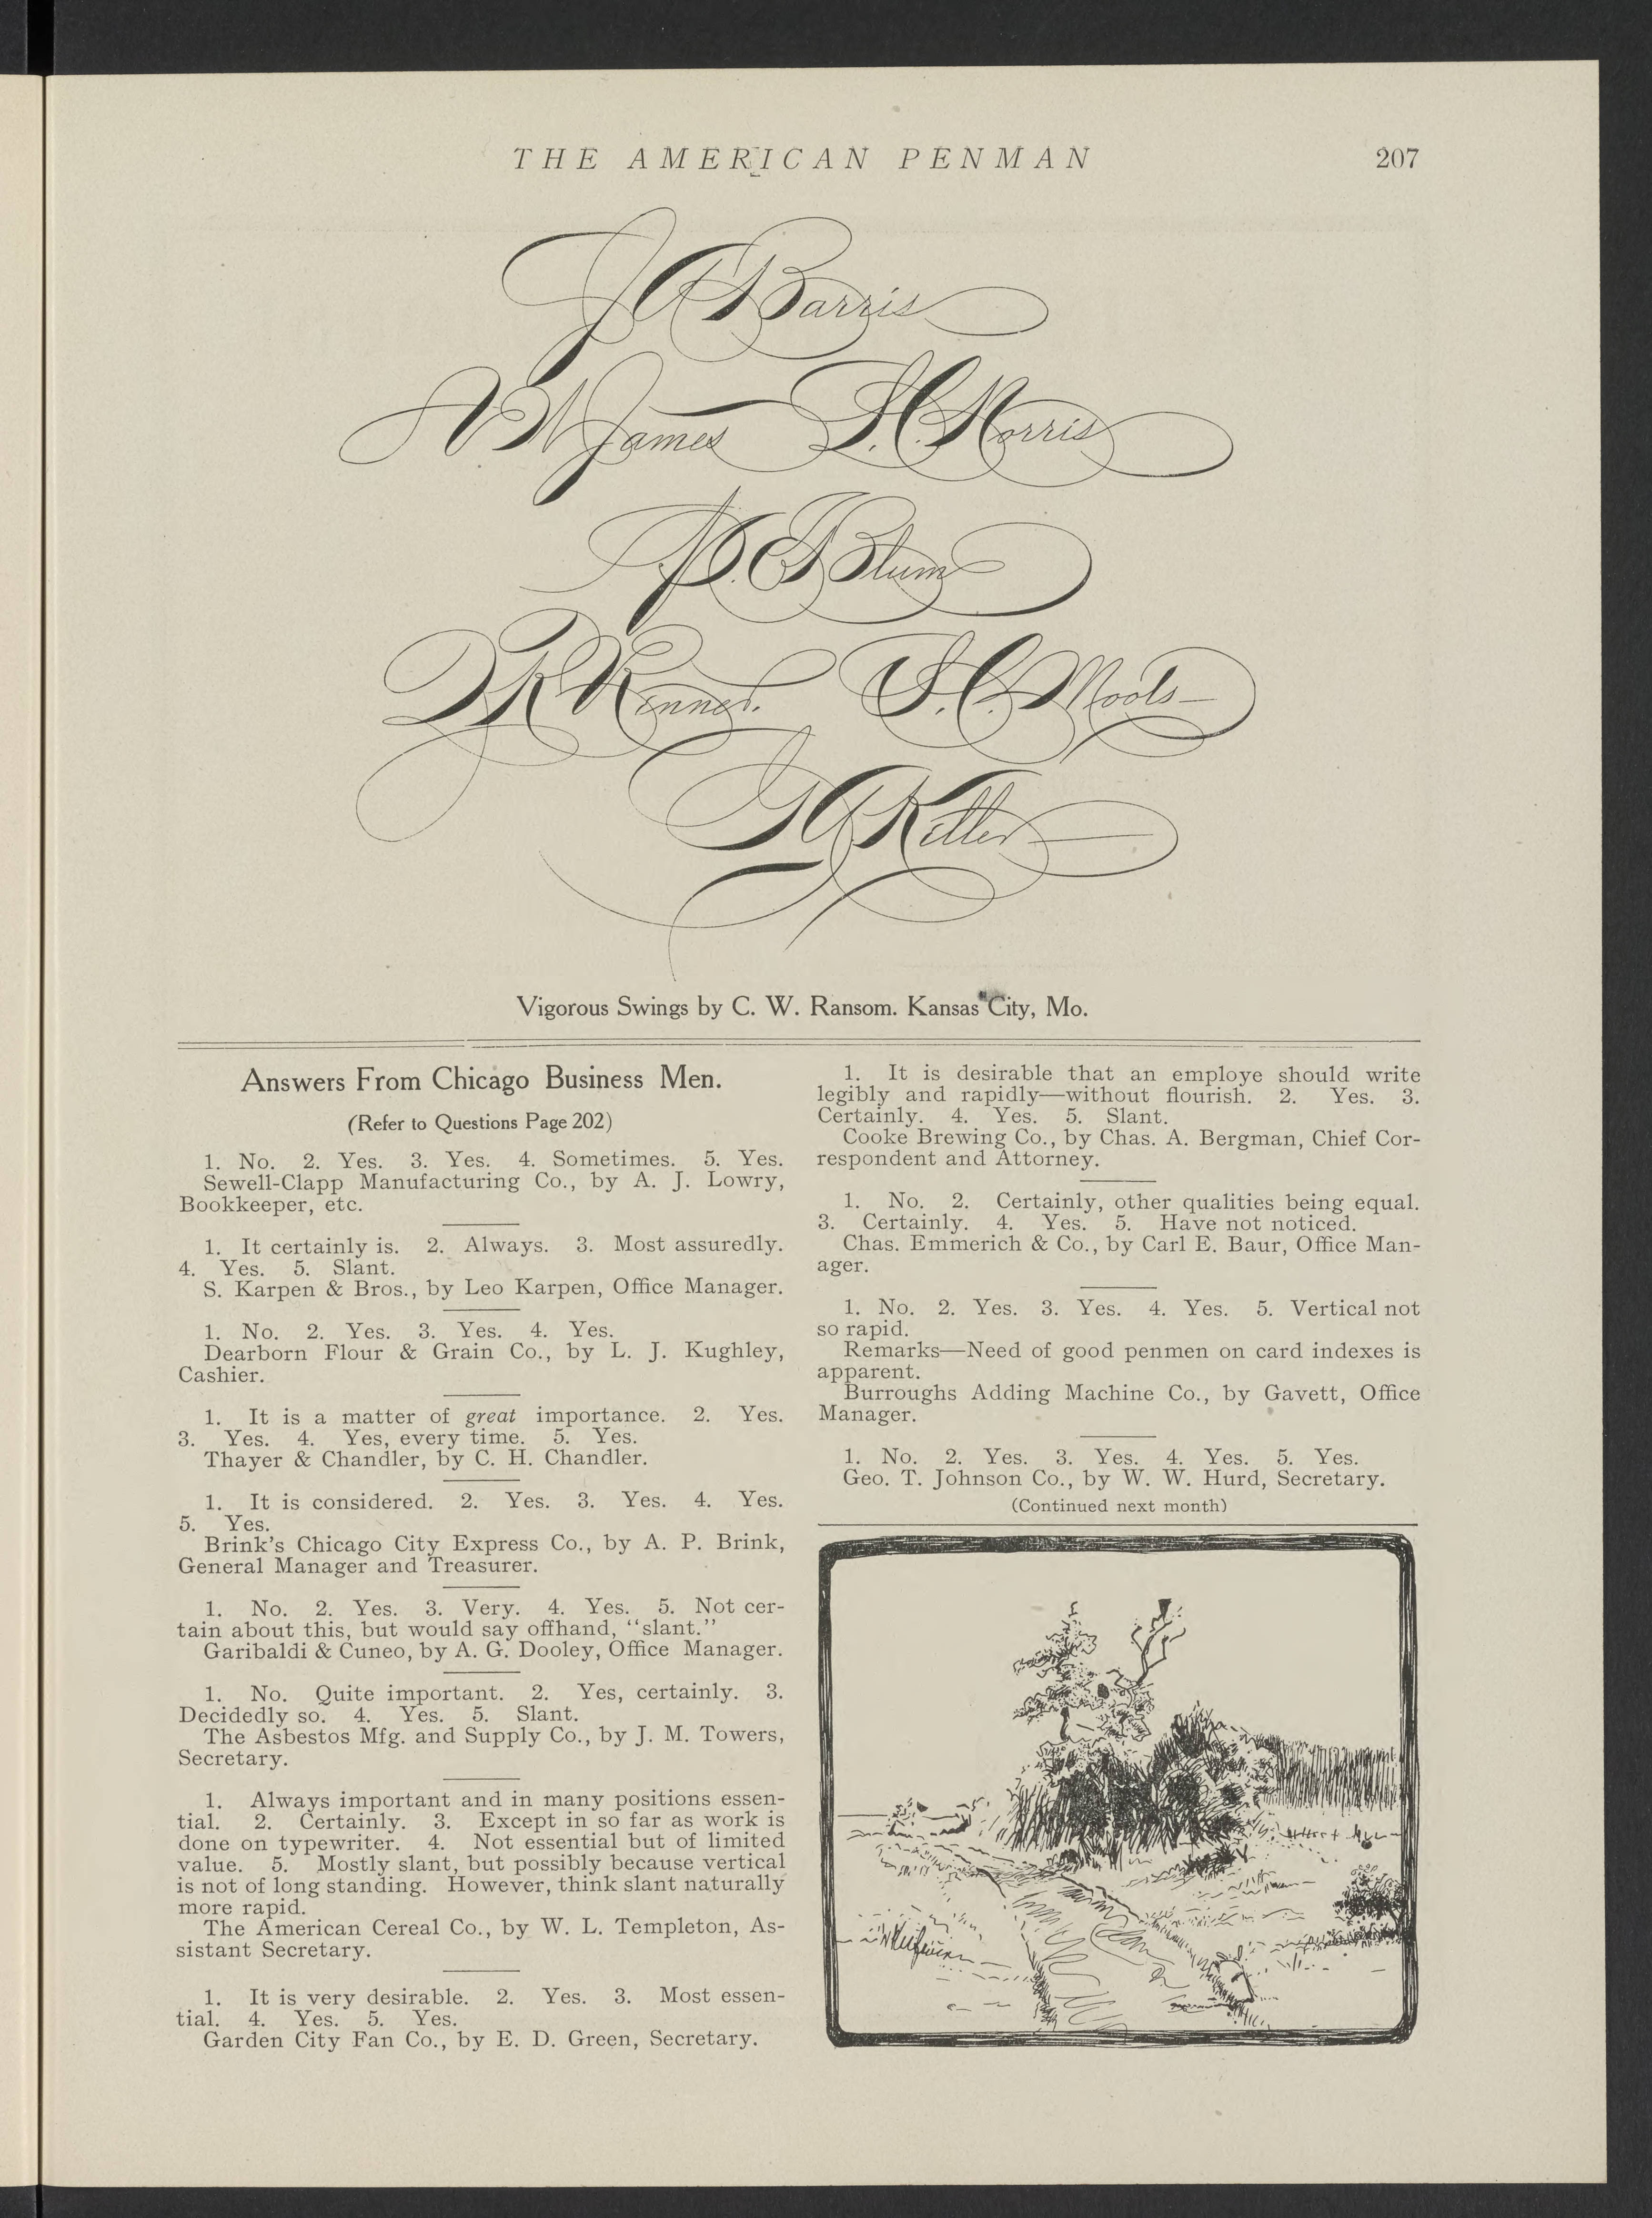 THE AMERICAN PENMAN
207
J A Barris
A W James S. C. Morris
P. C. Blum
D R Renner. S. C. Moots
G A Keller
Vigorous Swings by C. W. Ransom. Kansas City, Mo.
Answers From Chicago Business Men.
(Refer to Questions Page 202)
1. No. 2. Yes. 3. Yes. 4. Sometimes. 5. Yes.
Sewell-Clapp Manufacturing Co., by A. J. Lowry,
Bookkeeper, etc.
1. It certainly is. 2. Always. 3. Most assuredly.
4. Yes. 5. Slant.
S. Karpen & Bros., by Leo Karpen, Office Manager.
1. No. 2. Yes. 3. Yes. 4. Yes.
Dearborn Flour & Grain Co., by L. J. Kughley,
Cashier.
1. It is a matter of great importance. 2. Yes.
3. Yes. 4. Yes, every time. 5. Yes.
Thayer & Chandler, by C. H. Chandler.
1. It is considered. 2. Yes. 3. Yes. 4. Yes.
5. Yes.
Brink's Chicago City Express Co., by A. P. Brink,
General Manager and Treasurer.
1. No. 2. Yes. 3. Very. 4. Yes. 5. Not cer-
tain about this, but would say offhand, "slant."
Garibaldi & Cuneo, by A. G. Dooley, Office Manager.
1. No. Quite important. 2. Yes, certainly. 3.
Decidedly so. 4. Yes. 5. Slant.
The Asbestos Mfg. and Supply Co., by J. M. Towers,
Secretary.
1. Always important and in many positions essen-
tial. 2. Certainly. 3. Except in so far as work is
done on typewriter. 4. Not essential but of limited
value. 5. Mostly slant, but possibly because vertical
is not of long standing. However, think slant naturally
more rapid.
The American Cereal Co., by W. L. Templeton, As-
sistant Secretary.
1. It is very desirable. 2. Yes. 3. Most essen-
tial. 4. Yes. 5. Yes.
Garden City Fan Co., by E. D. Green, Secretary.
1. It is desirable that an employe should write
legibly and rapidly—without flourish. 2. Yes. 3.
Certainly. 4. Yes. 5. Slant.
Cooke Brewing Co., by Chas. A. Bergman, Chief Cor-
respondent and Attorney.
1. No. 2. Certainly, other qualities being equal.
3. Certainly. 4. Yes. 5. Have not noticed.
Chas. Emmerich & Co., by Carl E. Baur, Office Man-
ager.
1. No. 2. Yes. 3. Yes. 4. Yes. 5. Vertical not
so rapid.
Remarks—Need of good penmen on card indexes is
apparent.
Burroughs Adding Machine Co., by Gavett, Office
Manager.
1. No. 2. Yes. 3. Yes. 4. Yes. 5. Yes.
Geo. T. Johnson Co., by W. W. Hurd, Secretary.
(Continued next month)